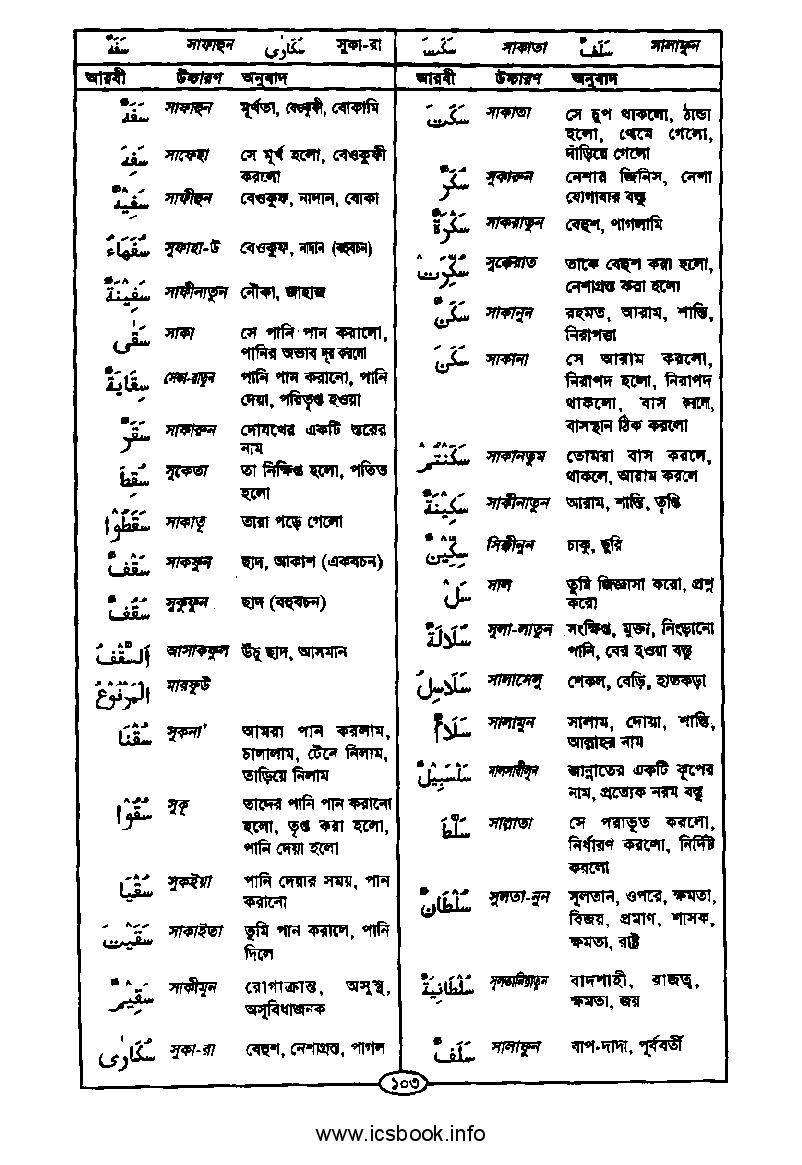 سَفَهٌ সাফাহুন سُكَارٰى সুকা-রা
আরবী উচ্চারণ অনুবাদ
سَفَهٌ সাফাহুন মূর্খতা, বেওকুফী, বোকামি
سَفِهَ সাফেহা সে মূর্খ হলো, বেওকুফী
করলো
سَفِيْهٌ সাফীহুন বেওকুফ, নাদান, বোকা
سُفَهَاءُ সুফাহা-উ বেওকুফ, নাদান (বহুবচন)
سَفِيْنَةٌ সাফীনাতুন নৌকা, জাহাজ
سَقٰى সাকা সে পানি পান করালো,
পানির অভাব দূর করলো
سِقَايَةٌ সেকা-য়াতুন পানি পান করানো, পানি
দেয়া, পরিতৃপ্ত হওয়া
سَقَرٌ সাকারুন দোযখের একটি স্তরের
নাম
سُقِطَ সুকেতা তা নিক্ষিপ্ত হলো, পতিত
হলো
سَقَطُوْا সাকাতূ তারা পড়ে গেলো
سَقْفٌ সাকফুন ছাদ, আকাশ (একবচন)
سُقُفٌ সুকুফুন ছাদ (বহুবচন)
اَلسَّقْفُ আসাকফুল উঁচু ছাদ, আসমান
الْمَرْفُوْعُ মারফুউ
سُقْنَا সুকনা আমরা পান করলাম,
চালালাম, টেনে নিলাম,
তাড়িয়ে নিলাম
سُقُوْا সুকূ তাদের পানি পান করানো
হলো, তৃপ্ত করা হলো,
পানি দেয়া হলো
سُقْيَا সুকইয়া পানি দেয়ার সময়, পান
করানো
سَقَيْتَ সাকাইতা তুমি পান করালে, পানি
দিলে
سَقِيْمٌ সাকীমুন রোগাক্রান্ত, অসুস্থ,
অসুবিধাজনক
سُكَارٰى সুকা-রা বেহুশ, নেশাগ্রস্ত, পাগল
سَكَتَ সাকাতা سَلَفٌ সালাফুন
আরবী উচ্চারণ অনুবাদ
سَكَتَ সাকাতা সে চুপ থাকলো, ঠান্ডা
হলো, থেমে গেলো,
দাঁড়িয়ে গেলো
سَكَرٌ সুকারুন নেশার জিনিস, নেশা
যোগাবার বস্তু
سَكْرَةٌ সাকরাতুন বেহুশ, পাগলামি
سُكِّرَتْ সুক্কেরাত তাকে বেহুশ করা হলো,
নেশাগ্রস্ত করা হলো
سَكَنٌ সাকানুন রহমত, আরাম, শান্তি,
নিরাপত্তা
سَكَنَ সাকানা সে আরাম করলো,
নিরাপদ হলো, নিরাপদ
থাকলো, বাস করলে,
বাসস্থান ঠিক করলো
سَكَنْتُمْ সাকানতুম তোমরা বাস করলে,
থাকলে, আরাম করলে
سَكِيْنَةٌ সাকীনাতুন আরাম, শান্তি, তৃপ্তি
سِكِّيْنٌ সিক্কীনুন চাকু, ছুরি
سَلْ সাল তুমি জিজ্ঞাসা করো, প্রশ্ন
করো
سُلَالَةٌ সুলা-লাতুন সংক্ষিপ্ত, মুক্তা, নিংড়ানো
পানি, বের হওয়া বস্তু
سَلَاسِلُ সালাসেলু শেকল, বেড়ি, হাতকড়া
سَلَامٌ সালামুন সালাম, দোয়া, শান্তি,
আল্লাহর নাম
سَلْسَبِيْلٌ সালসাবীলুন জান্নাতের একটি কূপের
নাম, প্রত্যেক নরম বস্তু
سَلَّطَ সাল্লাতা সে পরাভূত করলো,
নির্ধারণ করলো, নির্দিষ্ট
করলো
سُلْطَانٌ সুলতা-নুন সুলতান, ওপরে, ক্ষমতা,
বিজয়, প্রমাণ, শাসক,
ক্ষমতা, রাষ্ট্র
سُلْطَانِيَةٌ সুলতানিয়াতুন বাদশাহী, রাজত্ব,
ক্ষমতা, জয়
سَلَفٌ সালাফুন বাপ-দাদা, পূর্ববর্তী
১০৩
www.icsbook.info